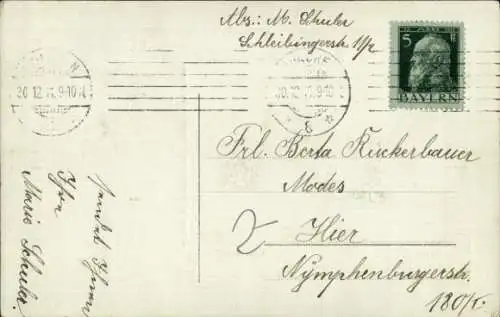 Abs.: M. Schuler
Schleibingerstr. 11/2
5
BAYERN
20.12.
9-10
Frl. Berta Ruckerbauer
Modes
2 Hier
Nymphenburgerstr.
180/I.
sendet Ihnen
Ihre
Marie Schuler.